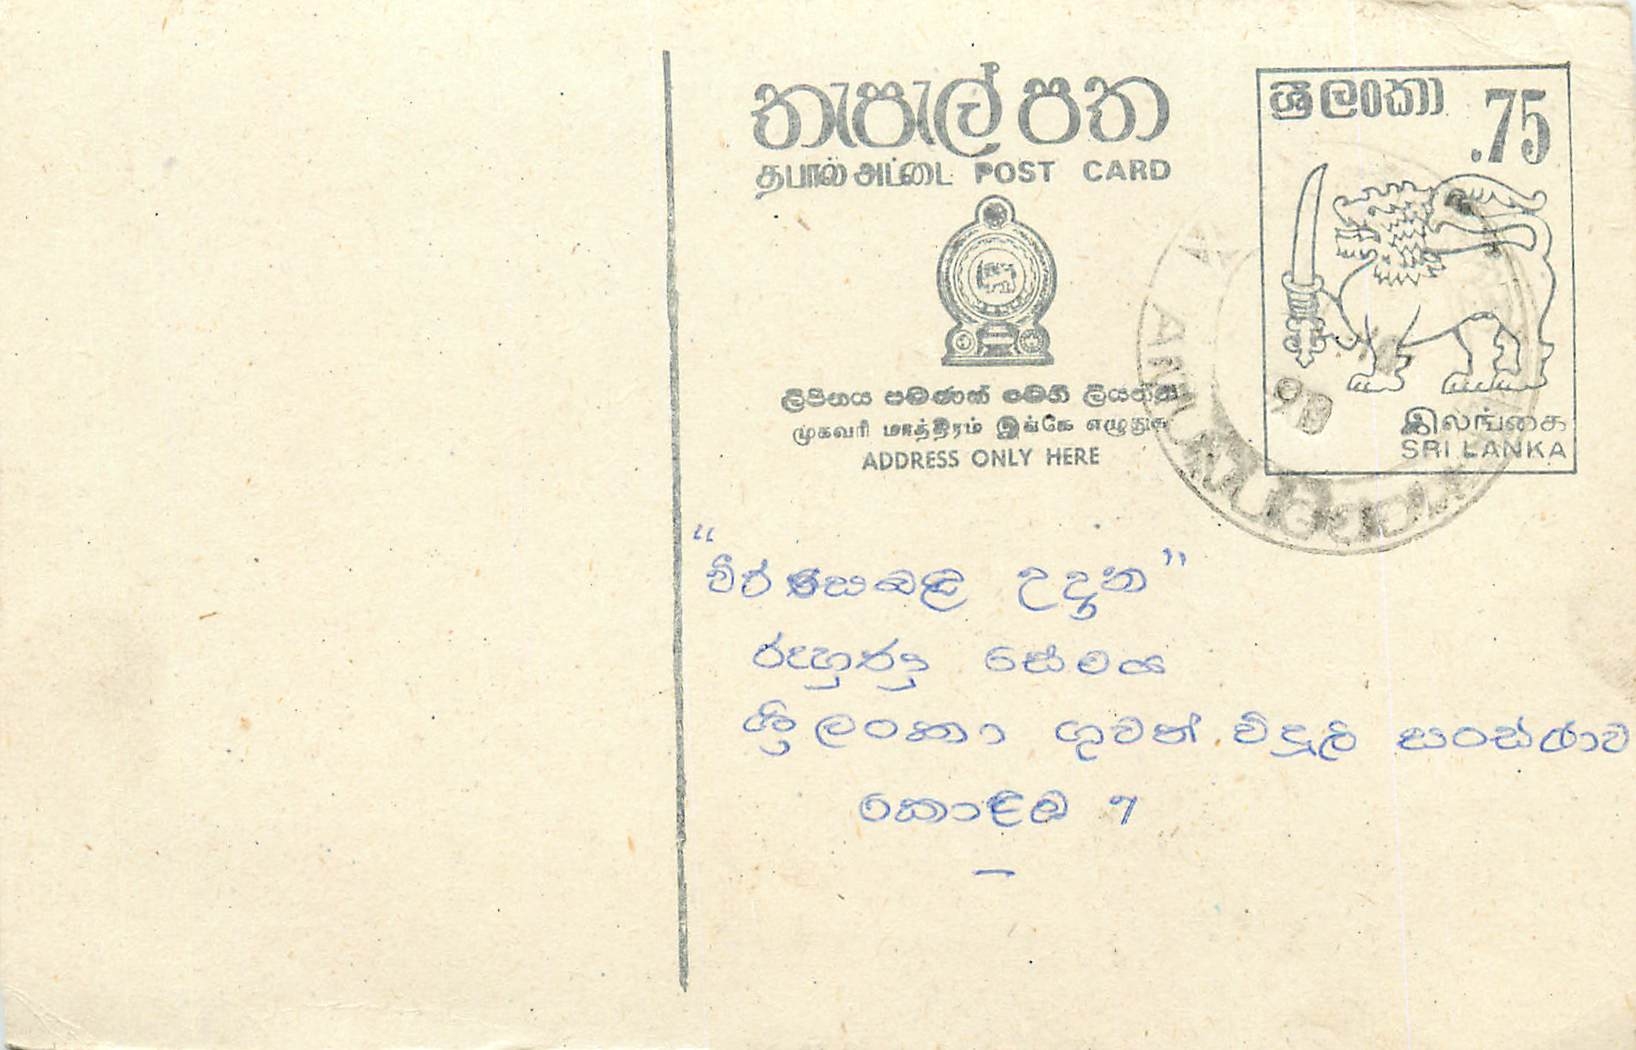 තැපැල් පත
தபால் அட்டை POST CARD
ශ්‍රී ලංකා
.75
இலங்கை
SRI LANKA
ලිපිනය පමණක් මෙහි ලියන්න
முகவரி மாத்திரம் இங்கே எழுதுக
ADDRESS ONLY HERE
උදාන"
රුහුණු සේවය
ශ්‍රී ලංකා ගුවන් විදුලි සංස්ථාව
කොළඹ 7